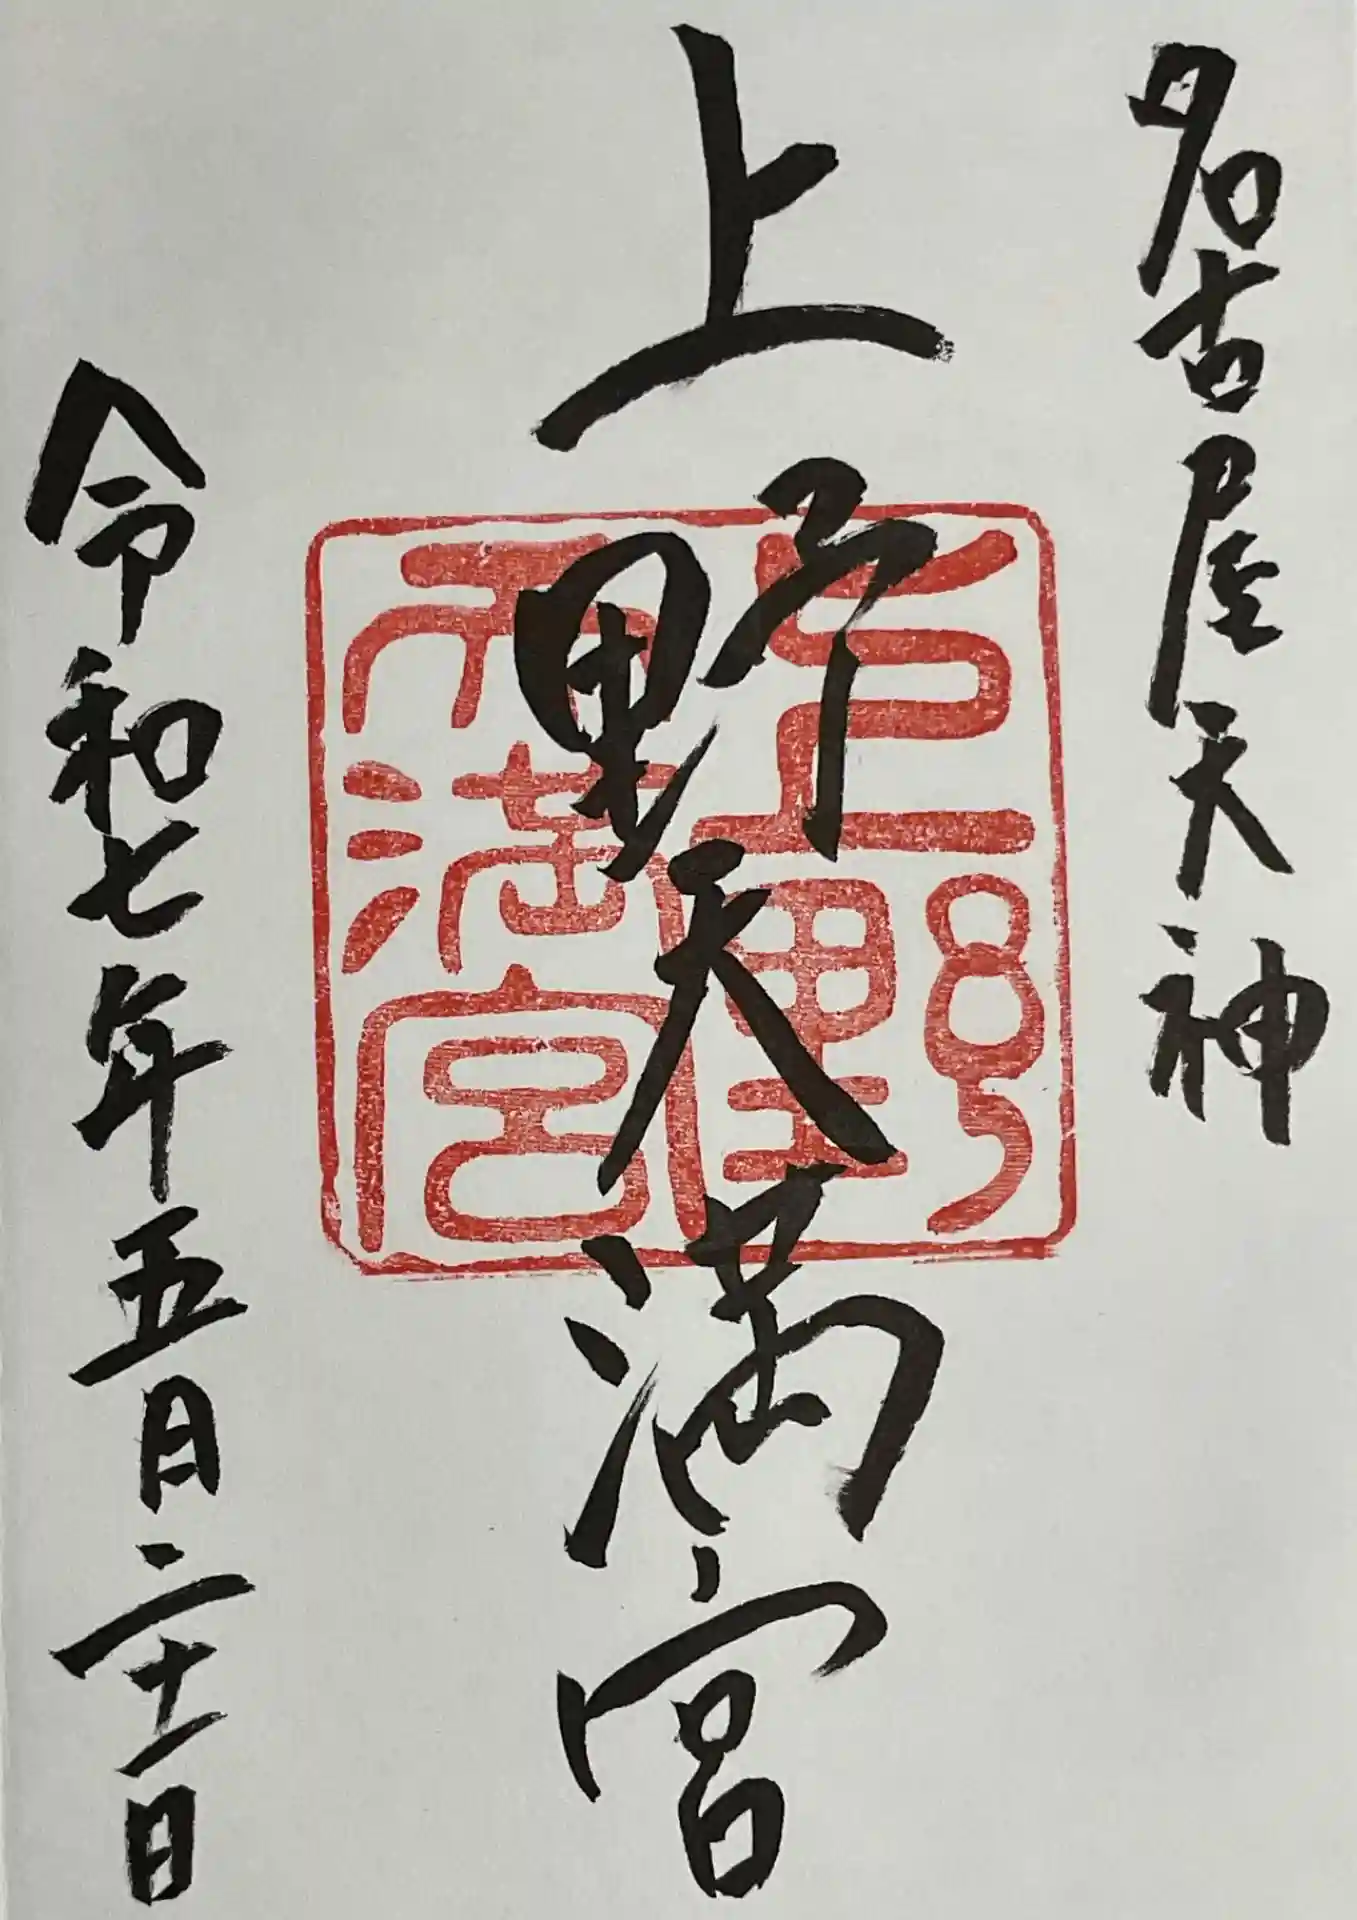 名古屋天神
上野天満宮
上野
天満宮
令和七年五月二十一日